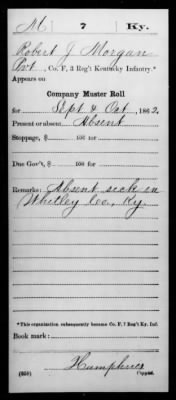 M 7 Ky.
Robert J Morgan
Pvt, Co. F, 3 Reg't Kentucky Infantry.*
Appears on
Company Muster Roll
for Sept & Oct, 1862.
Present or absent Absent
Stoppage, $ 100 for
Due Gov't, $ 100 for
Remarks: Absent sick in
Whitley Co., Ky.
*This organization subsequently became Co. F, 7 Reg't Ky. Inf.
Book mark:
Humphries
(358) Copyist.